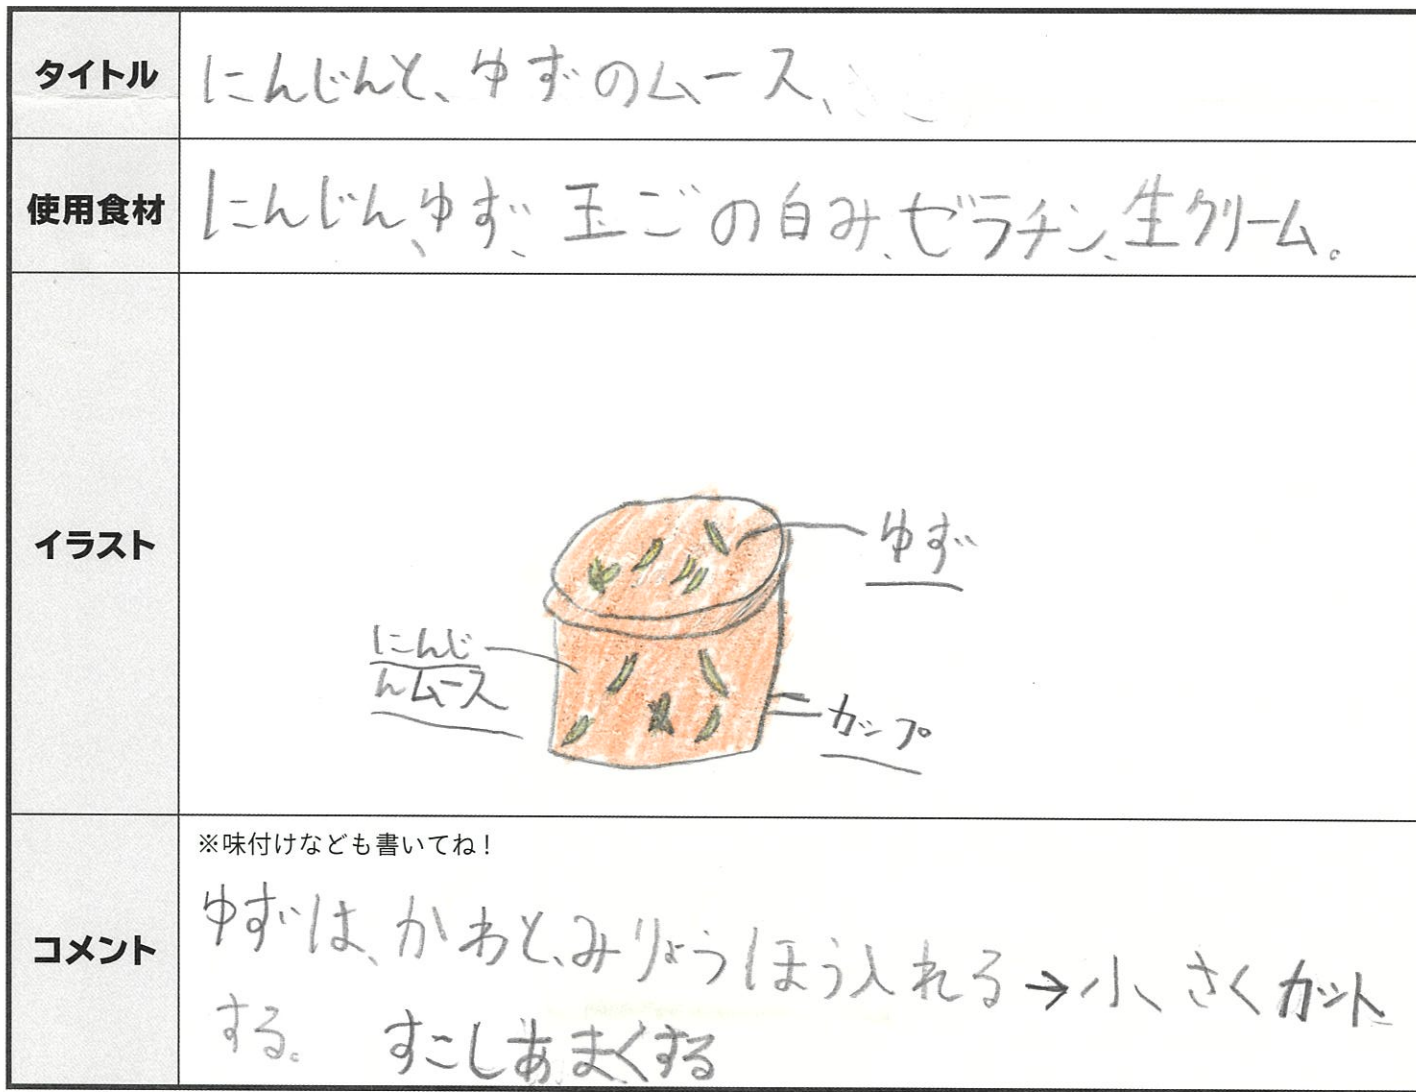 タイトル
にんじんと、ゆずのムース、
使用食材
にんじん、ゆず、玉ごの白み、ゼラチン、生クリーム。
イラスト
ゆず
にんじ
んムース
カップ
コメント
※味付けなども書いてね！
ゆずは、かわと、みりょうほう入れる→小さくカット
する。 すこしあまくする